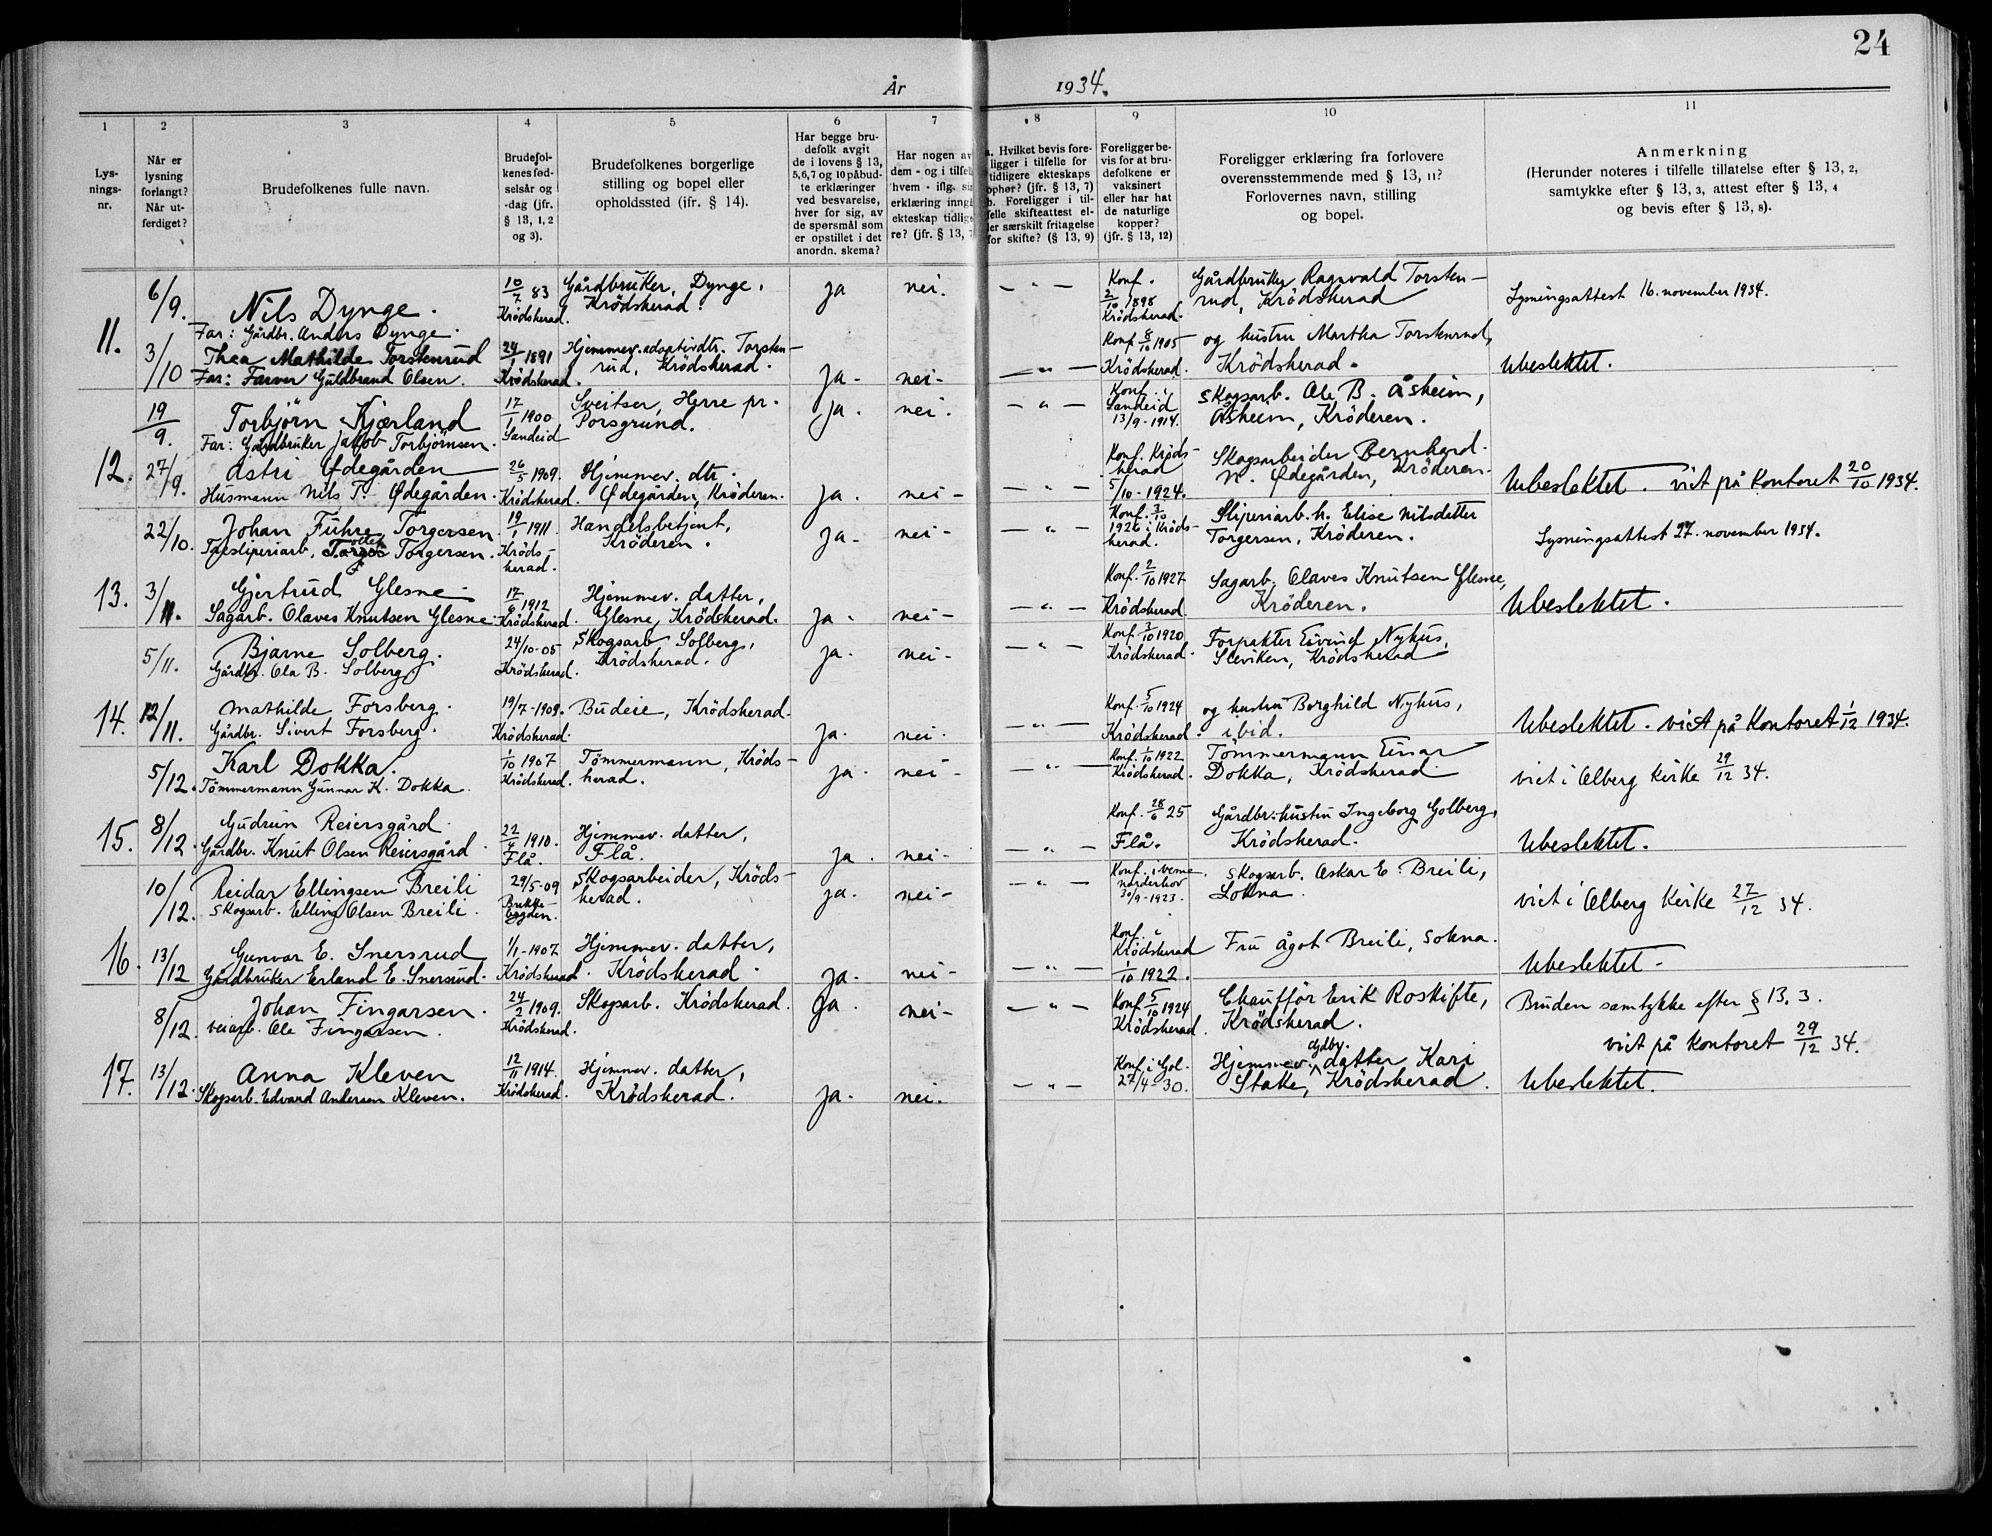 24
År 1934.
1 2 3 4 5 6 7 8 9 10 11
Lys-
nings-
nr.
Når er
lysning
forlangt?
Når ut-
ferdiget?
Brudefolkenes fulle navn.
Brudefol-
kenes fød-
selsår og
-dag (jfr.
§ 13, 1, 2
og 3).
Brudefolkenes borgerlige
stilling og bopel eller
opholdssted (ifr. § 14).
Har begge bru-
defolk avgit
de i lovens § 13,
5,6,7 og 10 påbud-
te erklæringer
ved besvarelse,
hver for sig, av
de spørsmål som
er opstillet i det
anordn. skema?
Har nogen av
dem - og i tilfel
hvem - iflg. si
erklæring inngå
ekteskap tidlige
re? (jfr. § 13, 7
a. Hvilket bevis fore-
ligger i tilfelle for
tidligere ekteskaps
ophør? (jfr. § 13, 7)
b. Foreligger i til-
felle skifteattest el-
ler særskilt fritagelse
for skifte? (§ 13, 9)
Foreligger be-
vis for at bru-
defolkene er
vaksinert
eller har hat
de naturlige
kopper?
(jfr. § 13, 12)
Foreligger erklæring fra forlovere
overensstemmende med § 13, 11?
Forlovernes navn, stilling
og bopel.
Anmerkning
(Herunder noteres i tilfelle tillatelse efter § 13, 2,
samtykke efter § 13, 3, attest efter § 13, 4
og bevis efter § 13, 8).
11.
6/9.
Nils Dynge.
Far: Gårdbr. Anders Dynge.
10/7 83
Krödsherad.
Gårdbruker, Dynge,
Krödsherad.
ja
nei.
— " —
Konf.
2/10 1898
Krödsherad.
Gårdbruker Ragnvald Torsten-
rud, Krödsherad
Lysningsattest 16. november 1934.
3/10
Thea Mathilde Torstenrud
Far: Farver Guldbrand Olsen.
24/1 1891
Krödsherad.
Hjemmev. adoptivdtr. Torsten-
rud, Krödsherad.
ja -
nei -
— " —
Konf. 8/10 1905
Krödsherad.
og hustru Martha Torstenrud,
Krödsherad.
Ubeslektet.
12.
19/9.
Torbjörn Kjærland
Far: Gårdbruker Jakob Torbjörnsen.
17/1 1900
Sandeid
Sveitser, Herre pr.
Porsgrund.
ja.
nei.
— " —
Konf. i
Sandeid
13/9 - 1914.
Skogsarb. Ole B. Åsheim,
Åsheim, Kröderen.
27/9.
Astri Ødegården
Husmann Nils T. Ødegården.
26/5 1909.
Krödsherad.
Hjemmev. dtr.
Ødegården, Kröderen.
ja.
nei -
— " —
Konf. Kröds-
herad
5/10 - 1924.
Skogsarbeider Bernhard
N. Ødegården, Kröderen.
Ubeslektet. viet på kontoret 20/10 1934.
13.
22/10.
Johan Fuhre Torgersen.
Tresliperiarb. Torgersen.
19/1 1911.
Kröds-
herad.
Handelsbetjent,
Kröderen.
ja -
nei -
— " —
Konf. 3/10
1926 i Kröds-
herad.
Sliperiarb. h. Elise Nilsdatter
Torgersen, Kröderen.
Lysningsattest 27. november 1934.
3/11.
Gjertrud Glesne.
Sagarb. Olaves Knutsen Glesne.
17/6 1912
Krödsherad.
Hjemmev. datter,
Glesne, Krödsherad.
ja.
nei -
— " —
Konf. 2/10 1927
Krödsherad
Sagarb. Olaves Knutsen Glesne,
Kröderen.
Ubeslektet.
14.
5/11.
Bjarne Solberg.
Gårdbr. Ola B. Solberg
24/10 - 05
Krödsherad.
Skogsarb Solberg,
Krödsherad.
ja.
nei -
— " —
Konf. 3/10 1920
Krödsherad.
Forpakter Eivind Nyhus,
Sleviken, Krödsherad
12/11.
Mathilde Forsberg.
Gårdbr. Sivert Forsberg.
19/7 - 1909.
Krödsherad.
Budeie, Krödsherad.
ja.
nei.
— " —
Konf. 5/10 1924
Krödsherad.
og hustru Borghild Nyhus,
ibid.
Ubeslektet. viet på kontoret 1/12 1934.
15.
5/12.
Karl Dokka.
Tömmermann Gunnar K. Dokka.
1/10 1907
Krödsherad.
Tömmermann, Kröds-
herad.
ja.
nei -
— " —
Konf. 1/10 1922
Krödsherad.
Tömmermann Einar
Dokka, Krödsherad.
viet i Olberg kirke 29/12 34.
8/12.
Gudrun Reiersgård.
Gårdbr. Knut Olsen Reiersgård
22/4 1910.
Flå.
Hjemmev. datter,
Flå.
ja.
nei -
— " —
Konf. 28/6 25
Flå.
Gårdbr.hustru Ingeborg Golberg,
Krödsherad.
Ubeslektet.
16.
10/12.
Reidar Ellingsen Breili
Skogsarb. Elling Olsen Breili.
29/5 - 09
Skogsarbeider, Kröds-
herad.
ja.
nei -
— " —
Konf. i
Norderhov
30/9 - 1923.
Skogsarb. Oskar E. Breili,
Sokna.
viet i Olberg kirke 27/12 34.
13/12
Gunvor E. Snersrud
Gårdbruker Erland E. Snersrud.
1/1 - 1907
Krödsherad.
Hjemmev. datter,
Krödsherad.
ja.
nei -
— " —
Konf. i
Krödsherad
1/10 1922.
Fru Ågot Breili, Sokna.
Ubeslektet -
17.
8/12.
Johan Fingarsen.
Veiarb. Ole Fingarsen.
24/2 1909.
Krödsherad.
Skogsarb. Krödsherad.
ja.
nei -
— " —
Konf 5/10 1924
Krödsherad.
Chauffør Erik Roskifte,
Krödsherad.
Bruden samtykke efter § 13. 3.
viet på kontoret 29/12 34.
13/12.
Anna Kleven
Skogsarb. Edvard Andersen Kleven.
12/11 1914.
Krödsherad.
Hjemmev. datter,
Krödsherad.
ja.
nei.
— " —
Konf. i Gol.
27/4 - 30.
Hjemmev. datter Kari
Stake, Krödsherad.
Ubeslektet.